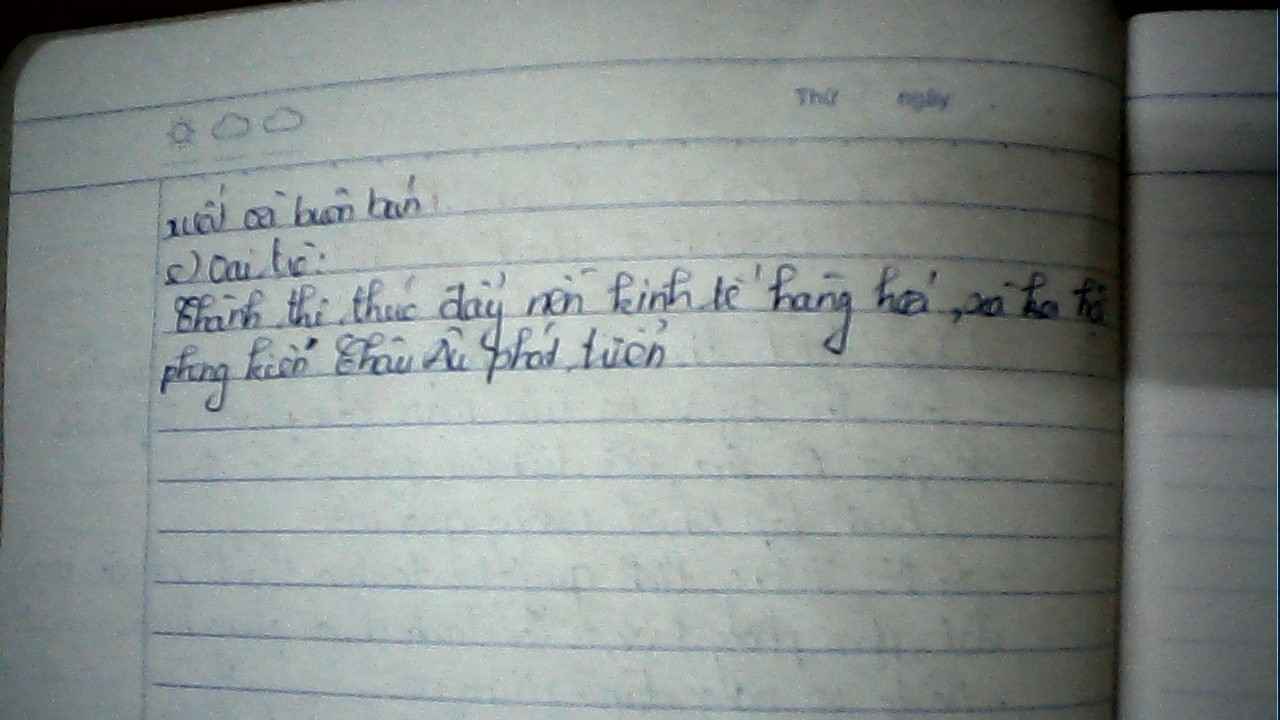 Thứ ngày
xuất và buôn bán.
c) Vai trò:
Thành thị thúc đẩy nền kinh tế hàng hoá, xã hội
phong kiến Châu Âu phát triển